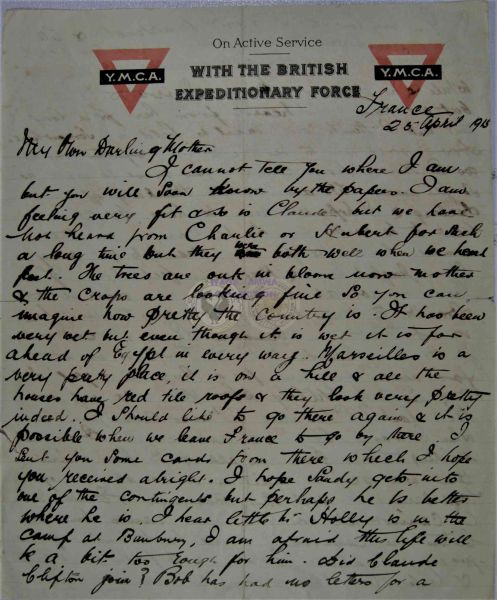 On Active Service
Y.M.C.A. WITH THE BRITISH Y.M.C.A.
EXPEDITIONARY FORCE
France
25 April 191
My Own Darling Mother
I cannot tell you where I am
but you will soon know by the papers. I am
feeling very fit & so is Claude but we have
not heard from Charlie or Hubert for such
a long time but they were both well when we heard
last. The trees are out in bloom now mother
& the crops are looking fine so you can
imagine how pretty the country is. It has been
very wet but even though it is wet it is far
ahead of Egypt in every way. Marseilles is a
very pretty place, it is on a hill & all the
houses have red tile roofs & they look very pretty
indeed. I should like to go there again & it is
possible when we leave France to go by there. I
sent you some cards from there which I hope
you received alright. I hope Sandy gets into
one of the contingents but perhaps he is better
where he is. I hear little Holly is in the
camp at Bunbury, I am afraid this life will
be a bit too rough for him. Did Claude
Clifton join? Bob has had no letters for a